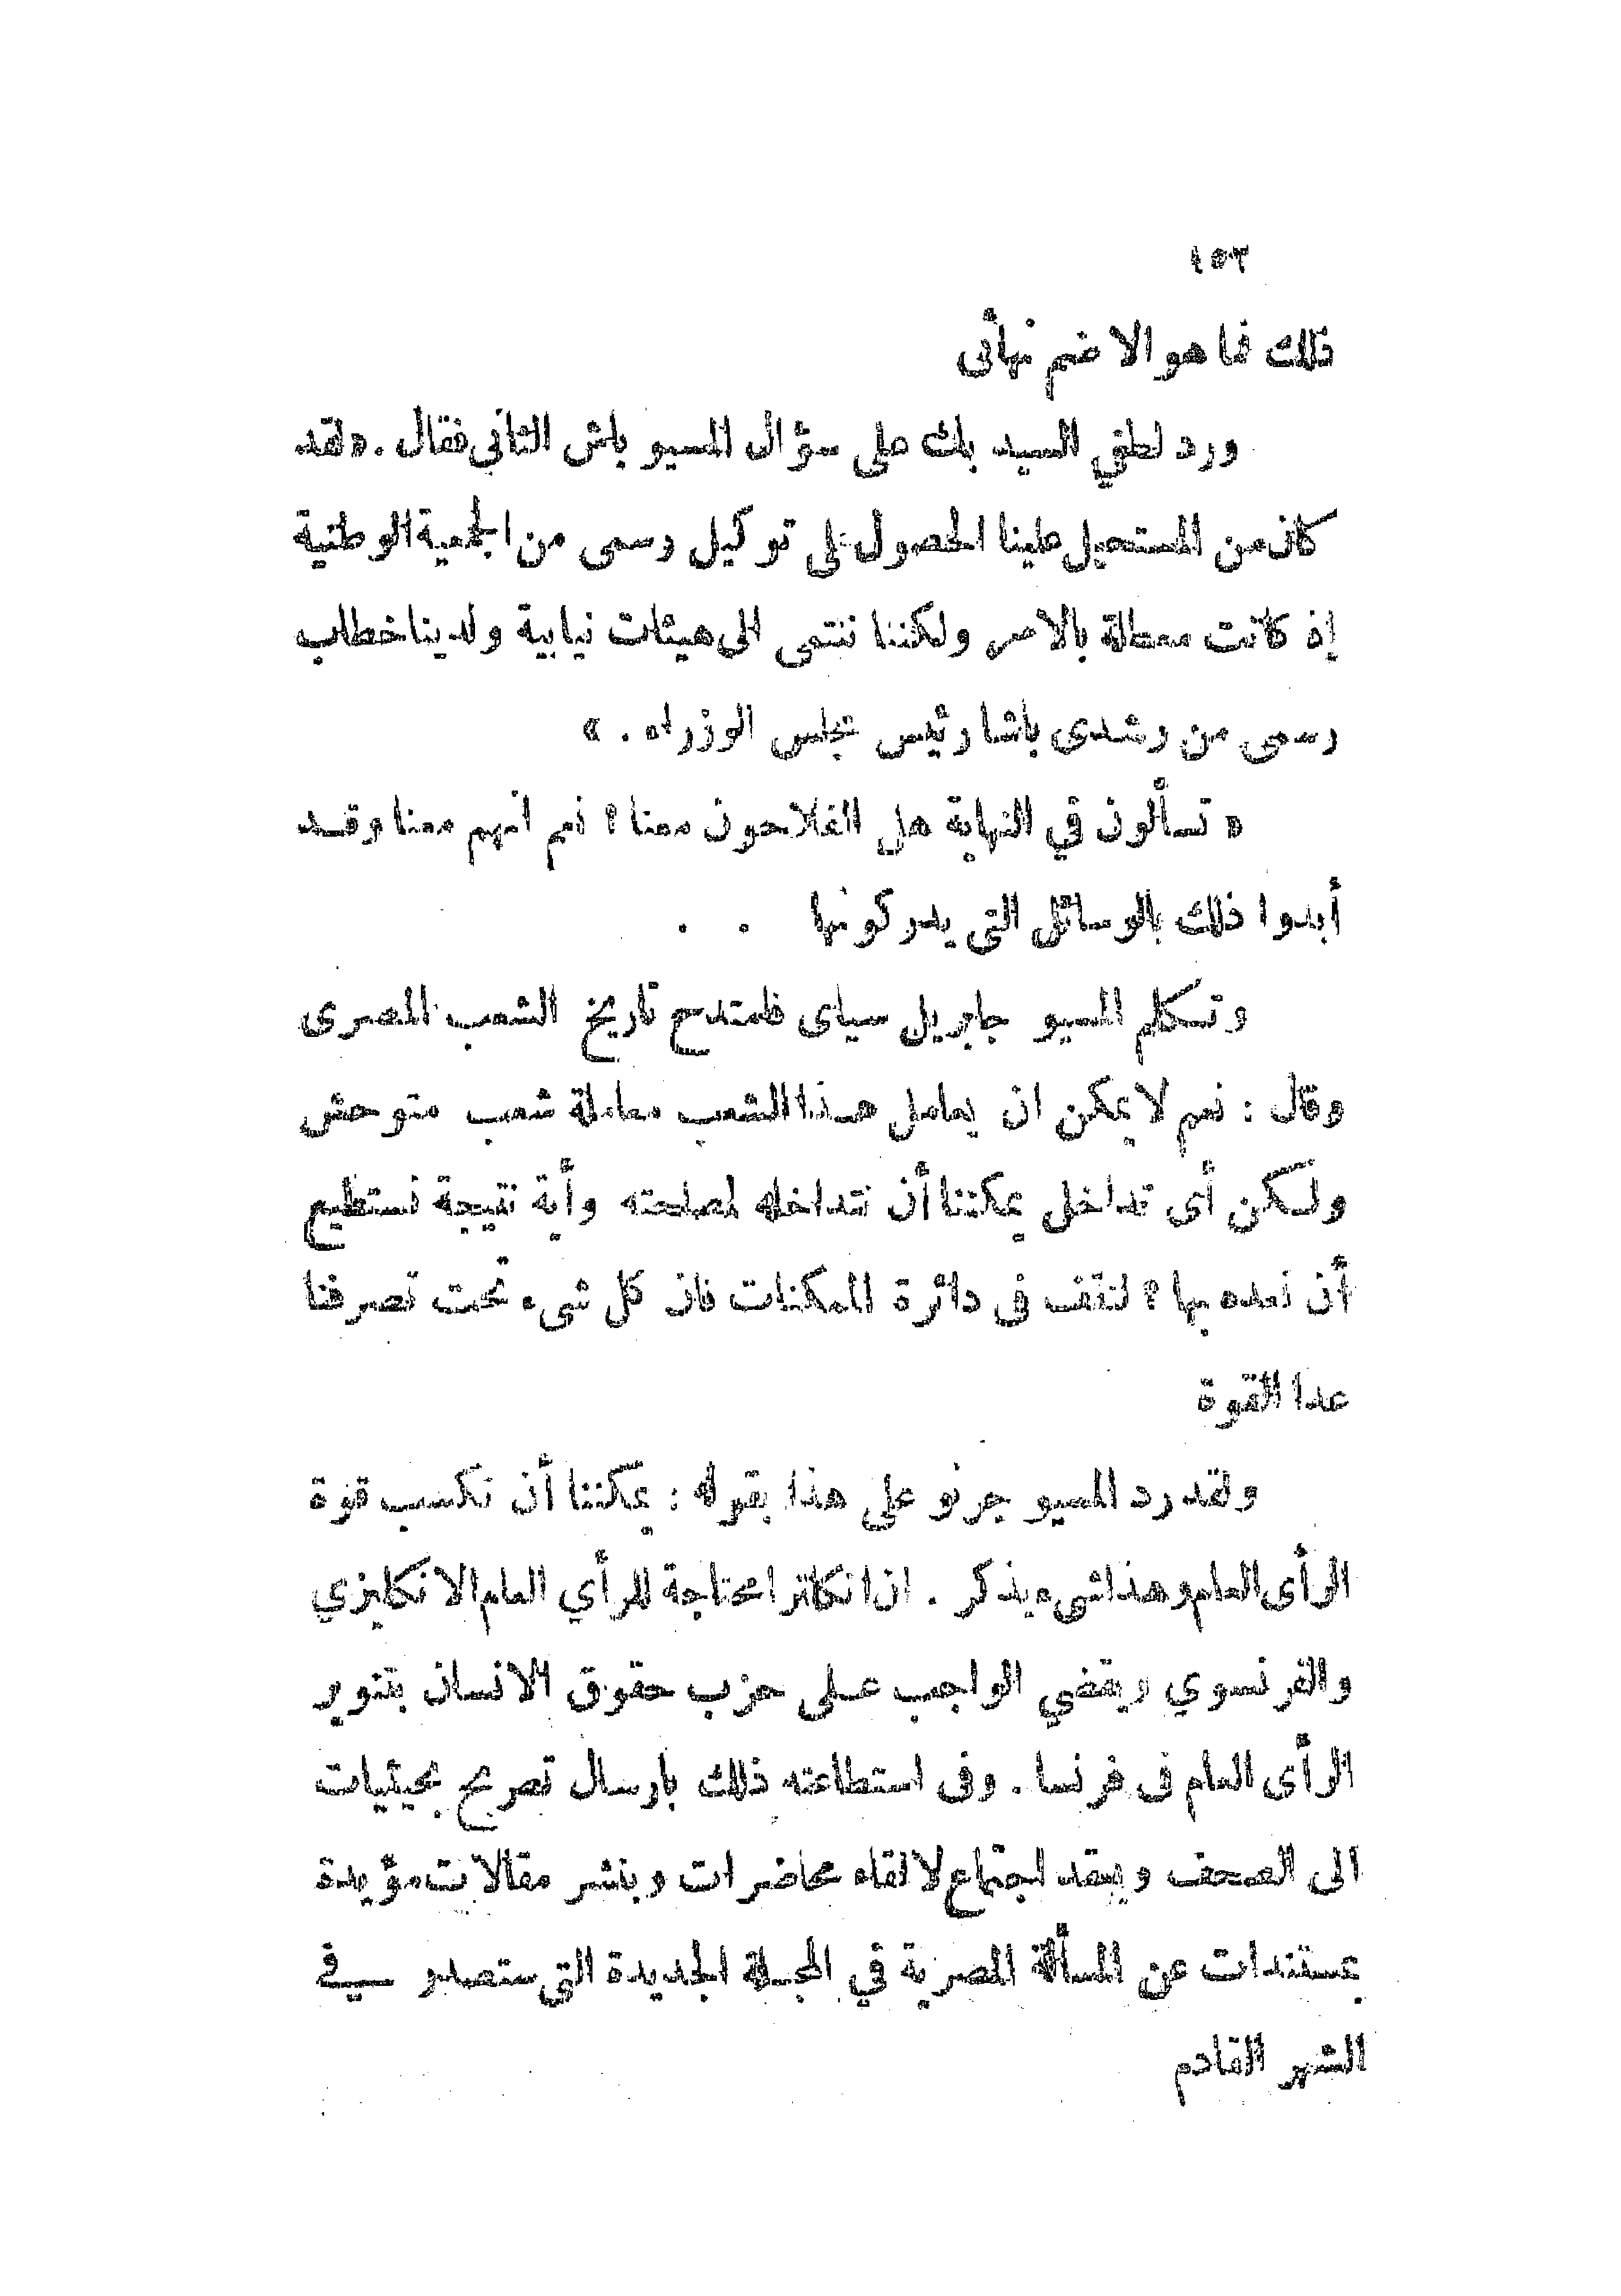 ١٥٣
ذلك فما هو الا ضم نهائى
ورد لطفي السيد بك على سؤال المسيو باش الثاني فقال . « لقد
كان من المستحيل علينا الحصول على توكيل رسمى من الجمعية الوطنية
إذ كانت معطلة بالامر ولكننا ننتمى الى هيئات نيابية ولدينا خطاب
رسمى من رشدى باشا رئيس مجلس الوزراء . »
« تسألون في النهاية هل الفلاحون معنا ؟ نعم انهم معنا وقد
أبدوا ذلك بالوسائل التي يدركونها . .
وتكلم المسيو جابريل سياى فامتدح تاريخ الشعب المصرى
وقال : نعم لا يمكن ان يعامل هذا الشعب معاملة شعب متوحش
ولكن أى تداخل يمكننا أن نتداخله لمصلحته وأية نتيجة نستطيع
أن نعده بها ؟ لنقف فى دائرة الممكنات فان كل شىء تحت تصرفنا
عدا القوة
ولقد رد المسيو جرنو على هذا بقوله : يمكننا أن نكسب قوة
الرأى العام وهذا شىء يذكر . ان انكلترا محتاجة للرأي العام الانكليزي
والفرنسوي ويقضي الواجب على حزب حقوق الانسان بتنوير
الرأى العام فى فرنسا . وفى استطاعته ذلك بارسال تصريح بحيثيات
الى الصحف وبعقد اجتماع لالقاء محاضرات وبنشر مقالات مؤيدة
بمستندات عن المسألة المصرية في المجلة الجديدة التى ستصدر في
الشهر القادم